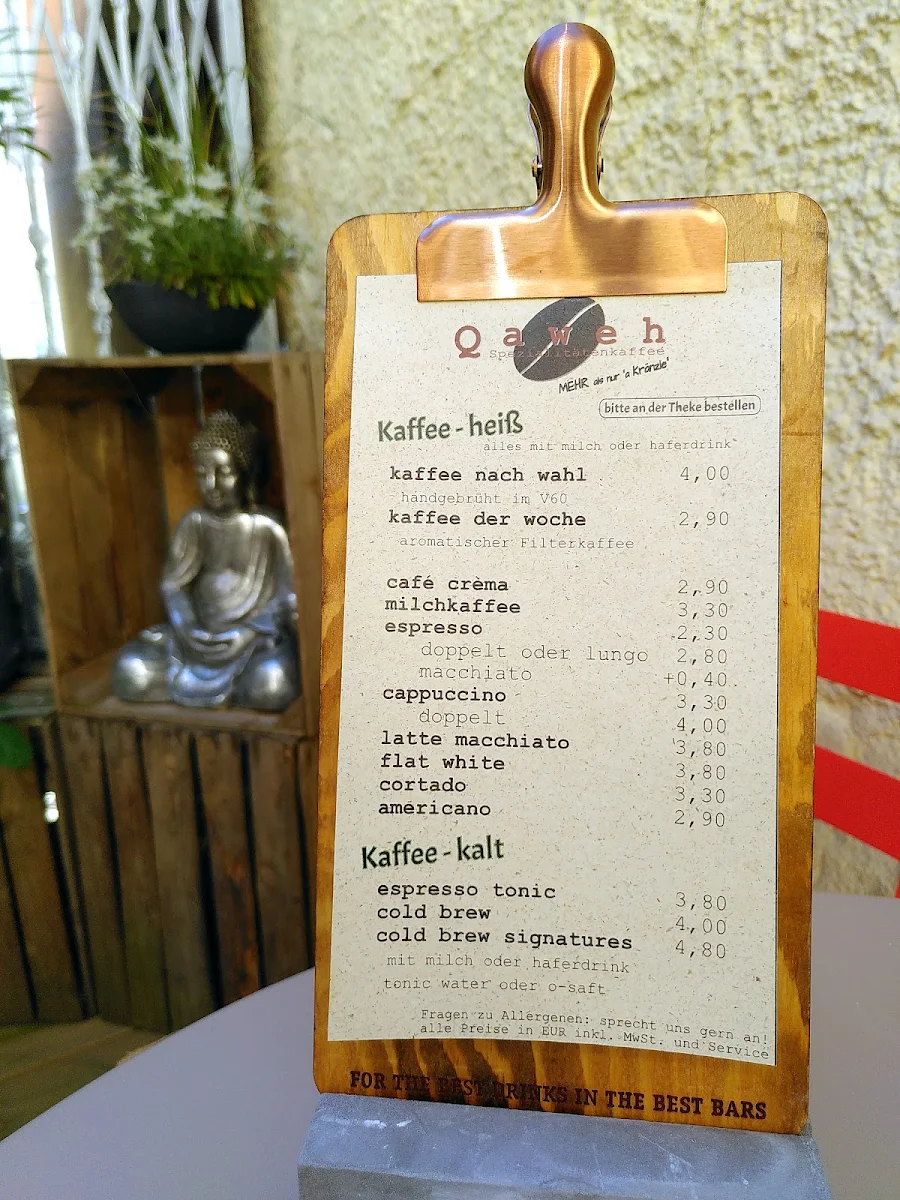 Qaweh
Spezialitätenkaffee
MEHR als nur 'a Kränzle'
bitte an der Theke bestellen
Kaffee - heiß
alles mit milch oder haferdrink
kaffee nach wahl 4,00
handgebrüht im V60
kaffee der woche 2,90
aromatischer Filterkaffee
café crèma 2,90
milchkaffee 3,30
espresso 2,30
doppelt oder lungo 2,80
macchiato +0,40
cappuccino 3,30
doppelt 4,00
latte macchiato 3,80
flat white 3,80
cortado 3,30
américano 2,90
Kaffee - kalt
espresso tonic 3,80
cold brew 4,00
cold brew signatures 4,80
mit milch oder haferdrink
tonic water oder o-saft
Fragen zu Allergenen: sprecht uns gern an!
alle Preise in EUR inkl. MwSt. und Service
FOR THE BEST DRINKS IN THE BEST BARS